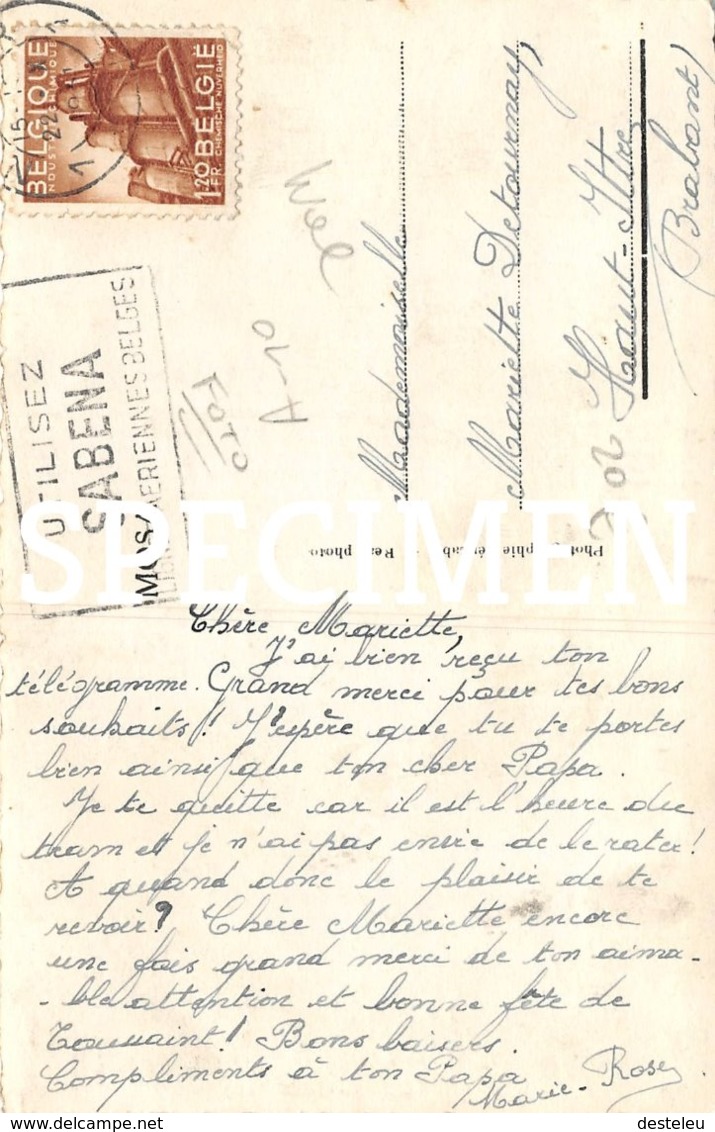 BELGIQUE
INDUSTRIE CHIMIQUE
1.20 FR.
BELGIË
CHEMISCHE NIJVERHEID
UTILISEZ
SABENA
LIGNES AERIENNES BELGES
MOSA
Wel
A-10
FOTO
Mademoiselle
Mariette Detournay,
Haut-Ittre
(Brabant)
Real photo
SPECIMEN
Chère Mariette,
J'ai bien reçu ton
télégramme. Grand merci pour tes bons
souhaits! J'espère que tu te portes
bien ainsi que ton cher Papa.
Je te quitte car il est l'heure du
tram et je n'ai pas envie de le rater!
A quand donc le plaisir de te
revoir? Chère Mariette encore
une fois grand merci de ton aima-
-ble attention et bonne fête de
Toussaint! Bons baisers.
Compliments à ton Papa
Marie-Rose
delcampe.net
desteleu